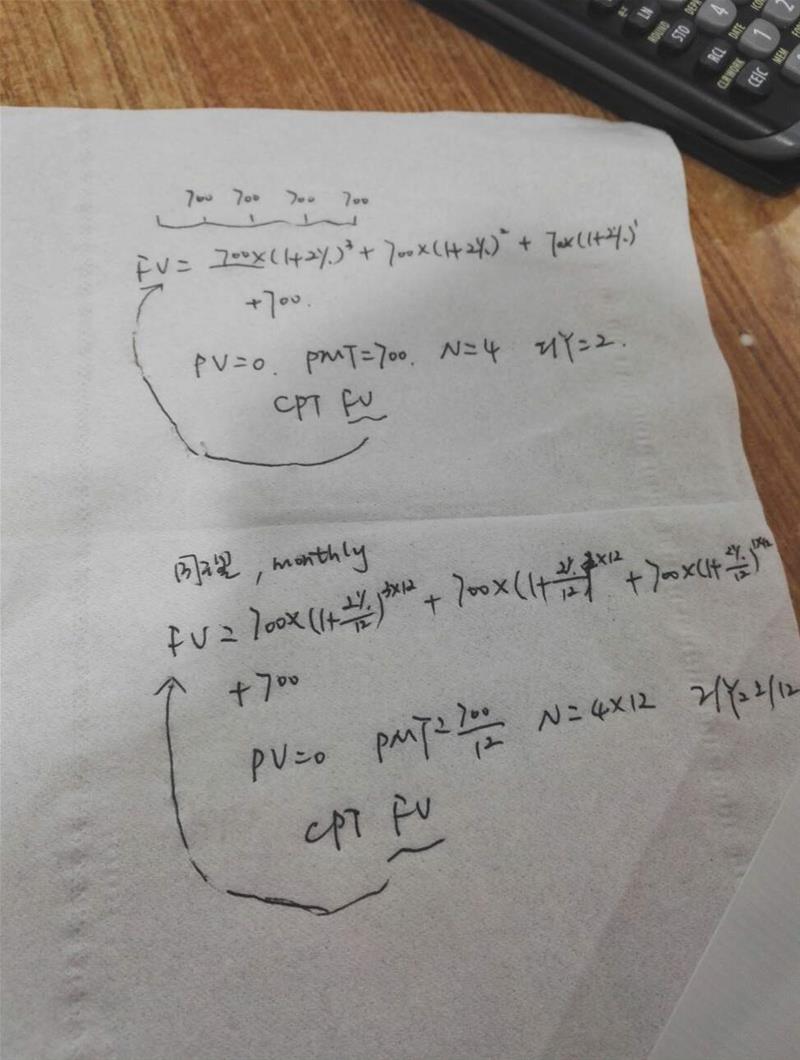 700 700 700 700
FV = 700×(1+2%)³ + 700×(1+2%)² + 700×(1+2%)¹
+700.
PV=0. PMT=700. N=4 I/Y=2.
CPT FV
同理, monthly
FV = 700×(1+2%/12)^3×12 + 700×(1+2%/12)^2×12 + 700×(1+2%/12)^1×12
+700
PV=0 PMT=700/12 N=4×12 I/Y=2/12
CPT FV
LN
4
2
ROUND
STO
DATE
1
RCL
MEM
CLR WORK
CE|C